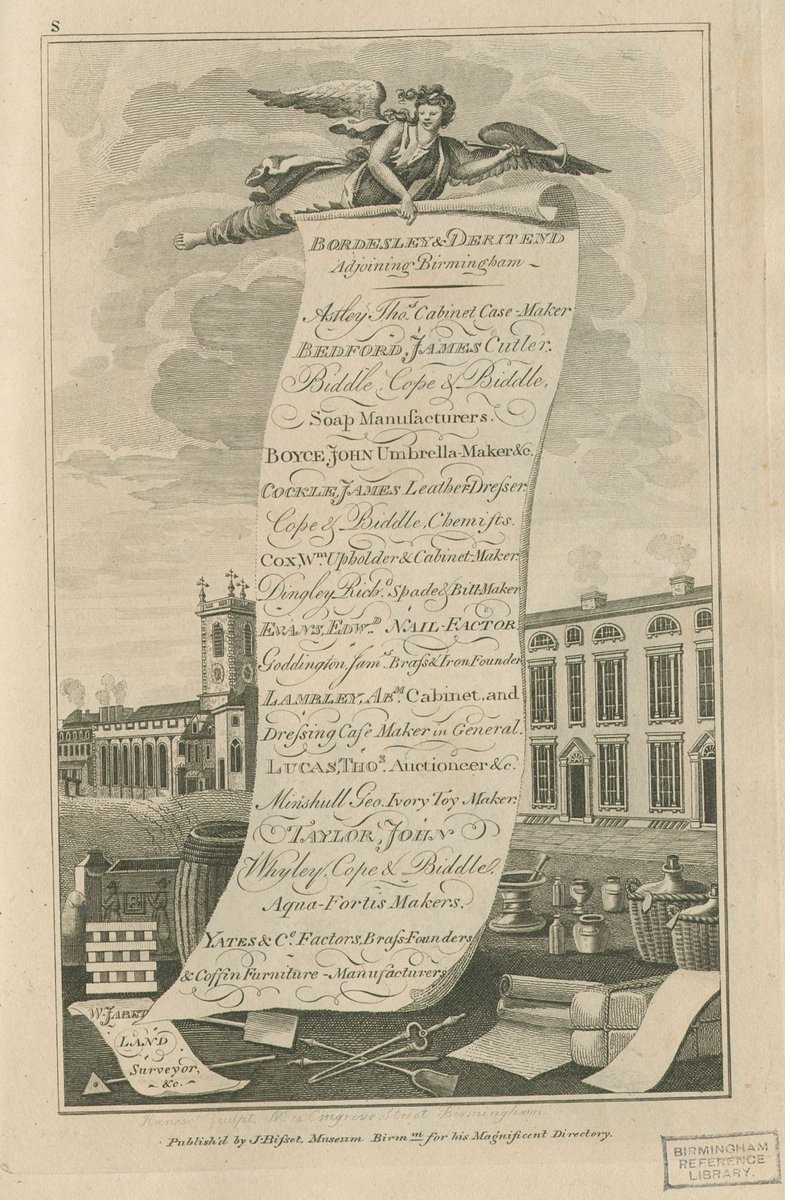 S
BORDESLEY & DERITEND
Adjoining Birmingham
Astley Tho.s Cabinet Case-Maker
BEDFORD, JAMES Cutler.
Biddle, Cope & Biddle,
Soap Manufacturers.
BOYCE, JOHN Umbrella-Maker &c.
COCKLE, JAMES Leather-Dreſser.
Cope & Biddle, Chemiſts.
COX, Wm. Upholder & Cabinet-Maker.
Dingley, Rich.d Spade & Bill-Maker
EVANS, EDW.D NAIL-FACTOR
Goddington, Sam.l Braſs & Iron Founder
LAMBLEY, AB.M Cabinet, and
Dreſsing Caſe Maker in General.
LUCAS, THO.s Auctioneer &c.
Minshull Geo. Ivory Toy Maker.
TAYLOR, JOHN
Whyley, Cope & Biddle,
Aqua-Fortis Makers.
YATES & Co. Factors, Braſs-Founders
& Coffin Furniture-Manufacturers
W. JABET
LAND
Surveyor,
&c.
Sculpt. No. 14 Street Birmingham
Publish'd by J. Biſset, Museum Birm.m for his Magnificent Directory.
BIRMINGHAM
REFERENCE
LIBRARY.